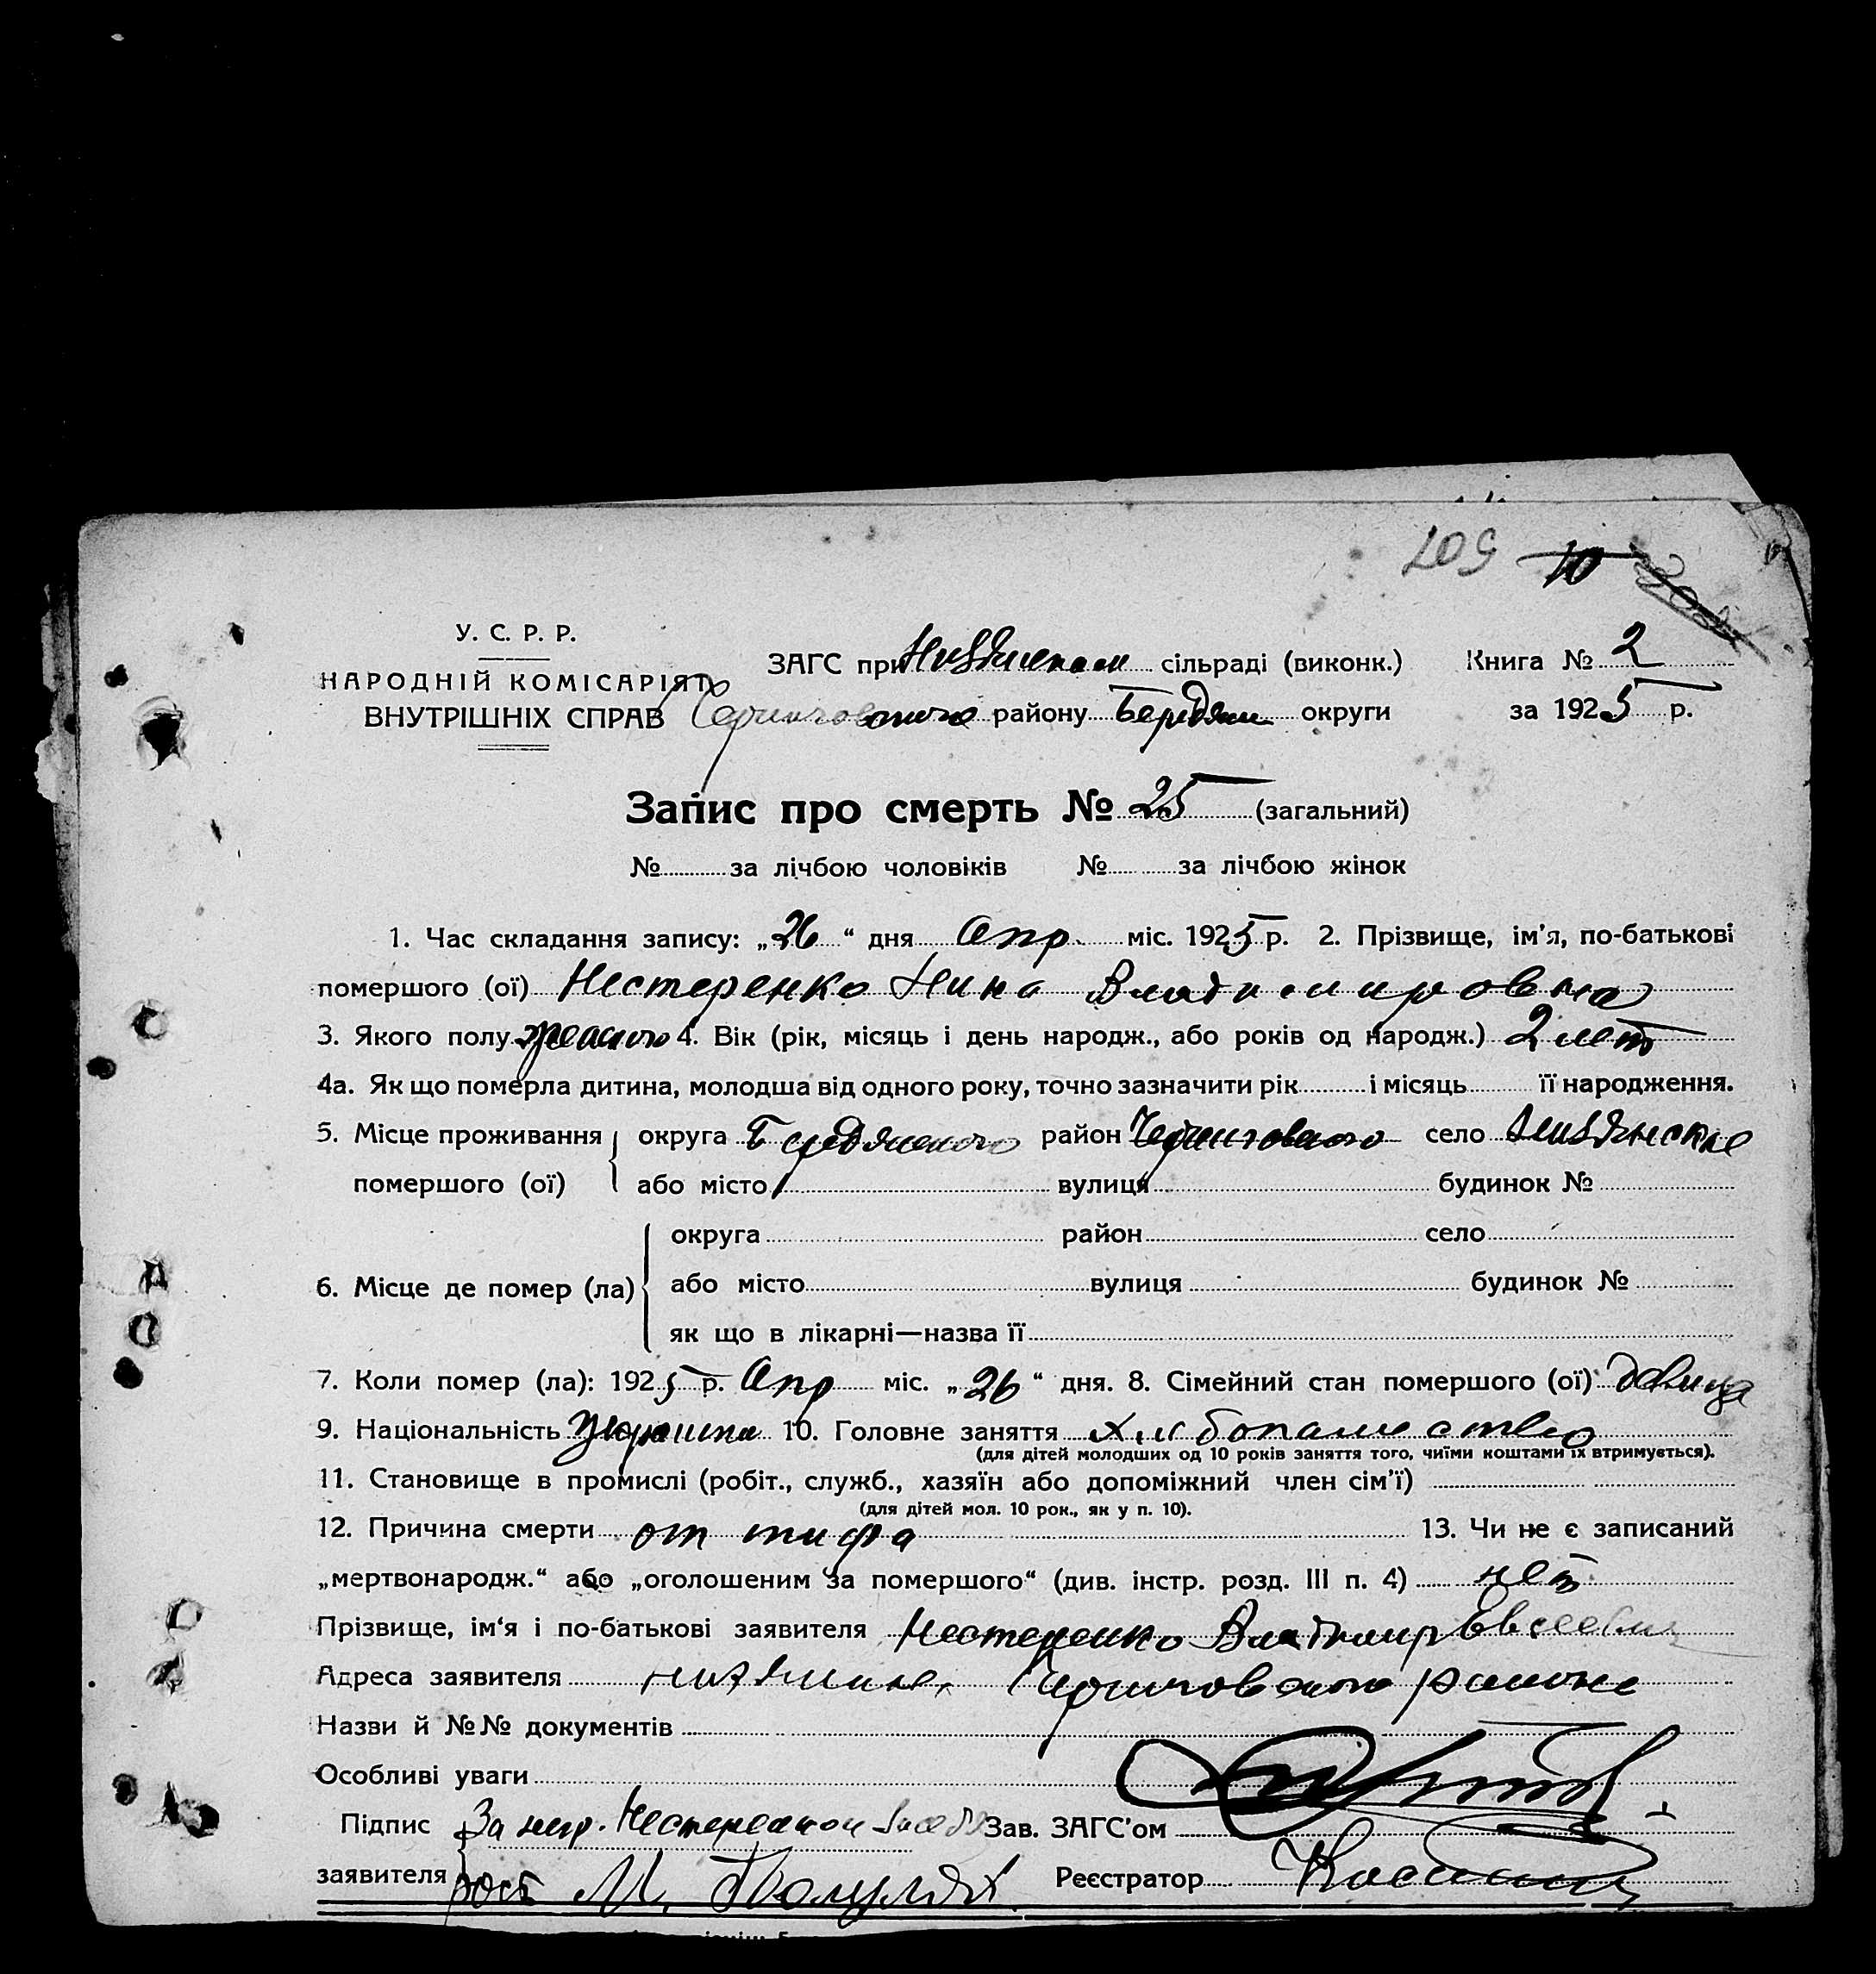 507 10
У. С. Р. Р.
НАРОДНІЙ КОМІСАРІЯТ
ВНУТРІШНІХ СПРАВ
ЗАГС при сільраді (виконк.) Книга № 2
Черниговского району Бердян округи за 1925 р.
Запис про смерть № 25 (загальний)
№ за лічбою чоловіків № за лічбою жінок
1. Час складання запису: „26“ дня Апр. міс. 1925 р. 2. Прізвище, ім’я, по-батькові
помершого (ої) Нестеренко Нина Владимировна
3. Якого полу женского 4. Вік (рік, місяць і день народж., або років од народж.) 2 лет
4а. Як що померла дитина, молодша від одного року, точно зазначити рік і місяць її народження.
5. Місце проживання округа Бердянского район Черниговского село
помершого (ої) або місто вулиця будинок №
округа район село
6. Місце де помер (ла) або місто вулиця будинок №
як що в лікарні—назва її
7. Коли помер (ла): 1925 р. Апр міс. „26“ дня. 8. Сімейний стан помершого (ої) девица
9. Національність 10. Головне заняття хлебопашество
(для дітей молодших од 10 років заняття того, чиїми коштами їх втримується).
11. Становище в промислі (робіт., служб., хазяїн або допоміжний член сім’ї)
(для дітей мол. 10 рок., як у п. 10).
12. Причина смерти от тифа 13. Чи не є записаний
„мертвонародж.“ або „оголошеним за помершого“ (див. інстр. розд. III п. 4) нет
Прізвище, ім’я і по-батькові заявителя Нестеренко Владимир Евсеевич
Адреса заявителя Черниговского района
Назви й №№ документів
Особливі уваги
Підпис За негр. Нестеренкой Зав. ЗАГС’ом
заявителя М. Реєстратор